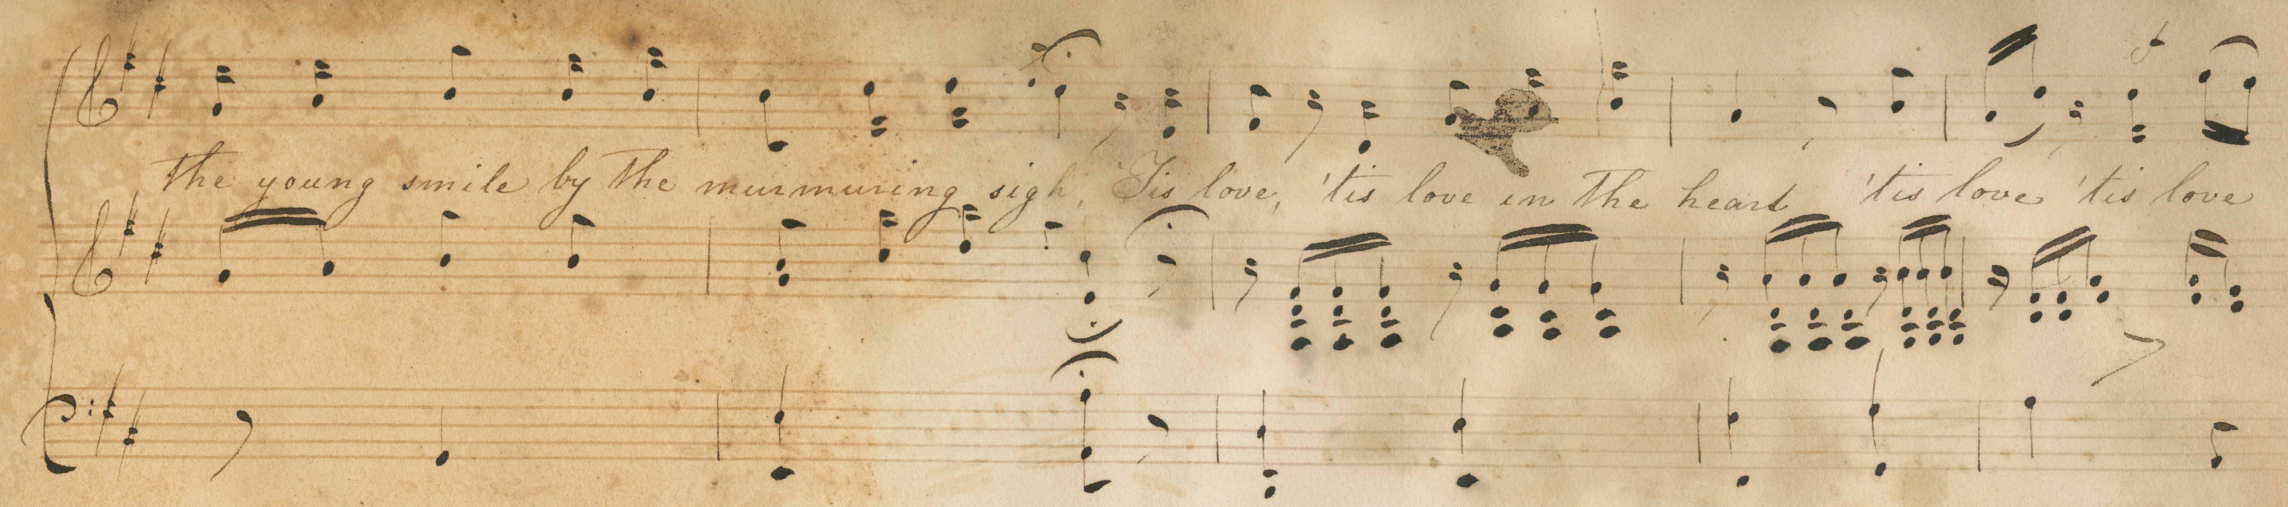 the young smile by the murmuring sigh, 'Tis love, 'tis love in the heart 'tis love 'tis love